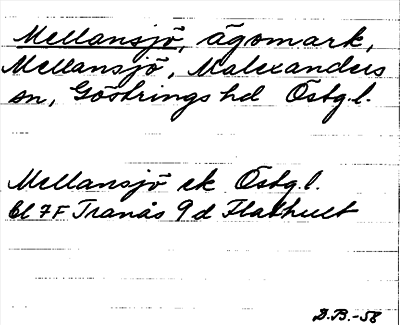 Mellansjö, ägomark,
Mellansjö, Malexanders
sn, Göstrings hd Östg.l.
Mellansjö ek Östg.l.
bl 7F Tranås 9d Flathult
D.B.-58